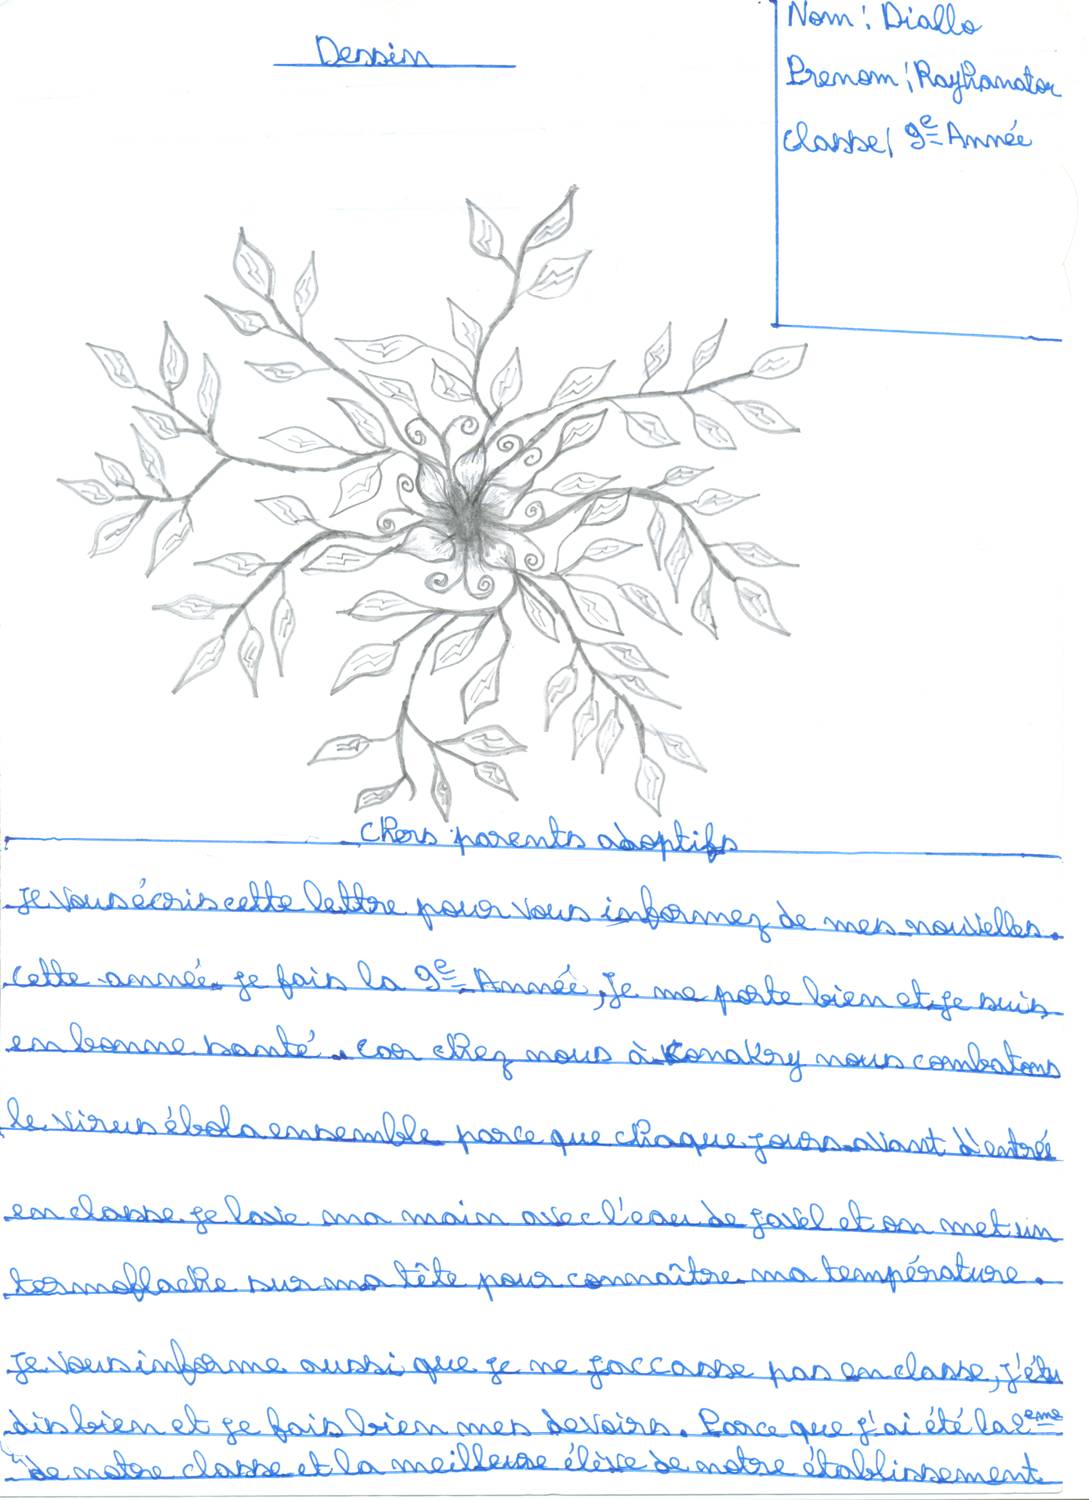 Dessin
Nom : Diallo
Prenom : Rayhanator
classe : 9e Année
chers parents adoptifs
Je vous écris cette lettre pour vous informez de mes nouvelles.
cette année je fais la 9e Année, Je me porte bien et je suis
en bonne santé. car chez nous à Konakry nous combatons
le virus ébola ensemble parce que chaque jours avant d'entrée
en classe je lave ma main avec l'eau de javel et on met un
termoflache sur ma tête pour connaître ma température.
Je vous informe aussi que je ne jaccasse pas en classe, j'étu
dis bien et je fais bien mes devoirs. Parce que j'ai été la 2eme
de notre classe et la meilleure élève de notre établissement